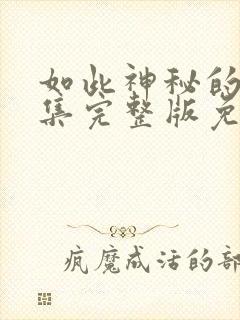 如此神秘的
集完整版免
疯魔成活的部